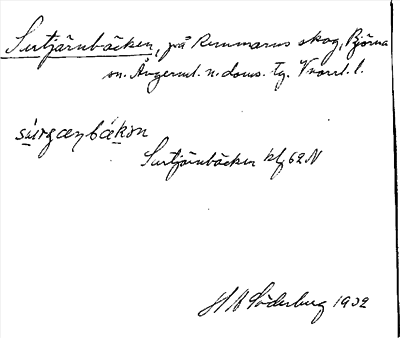 Surtjärnbäcken, på Remmarns skog, Björna
sn. Ångerml. n. doms. tg. Vnorrl. l.
surgæṇbäkən
Surtjärnbäcken kbl 62 N
H A Söderberg 1932